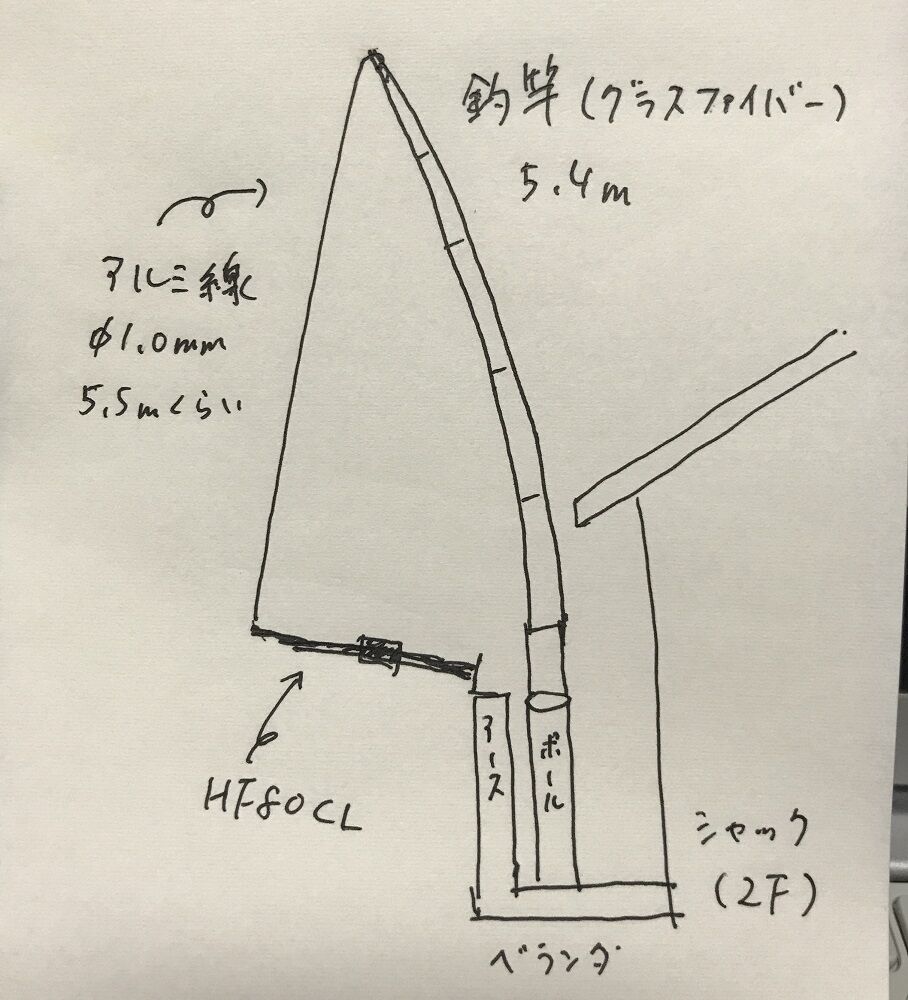 釣竿(グラスファイバー)
5.4m
アルミ線
φ1.0mm
5.5mくらい
HF80CL
アース
ポール
シャック
(2F)
ベランダ